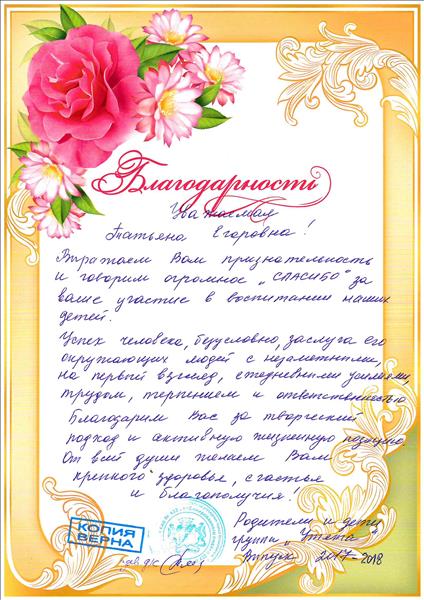 Благодарность
Уважаемая
Татьяна Егоровна!
Выражаем Вам признательность
и говорим огромное „СПАСИБО" за
ваше участие в воспитании наших
детей.
Успех человека, безусловно, заслуга его
окружающих людей с незаметными,
на первый взгляд, ежедневными усилиями,
трудом, терпением и ответственностью
Благодарим Вас за творческий
подход и активную жизненную позицию.
От всей души желаем Вам
крепкого здоровья, счастья
и благополучия!
Родители и дети
группа "Утята"
Выпуск 2017-2018
КОПИЯ
ВЕРНА